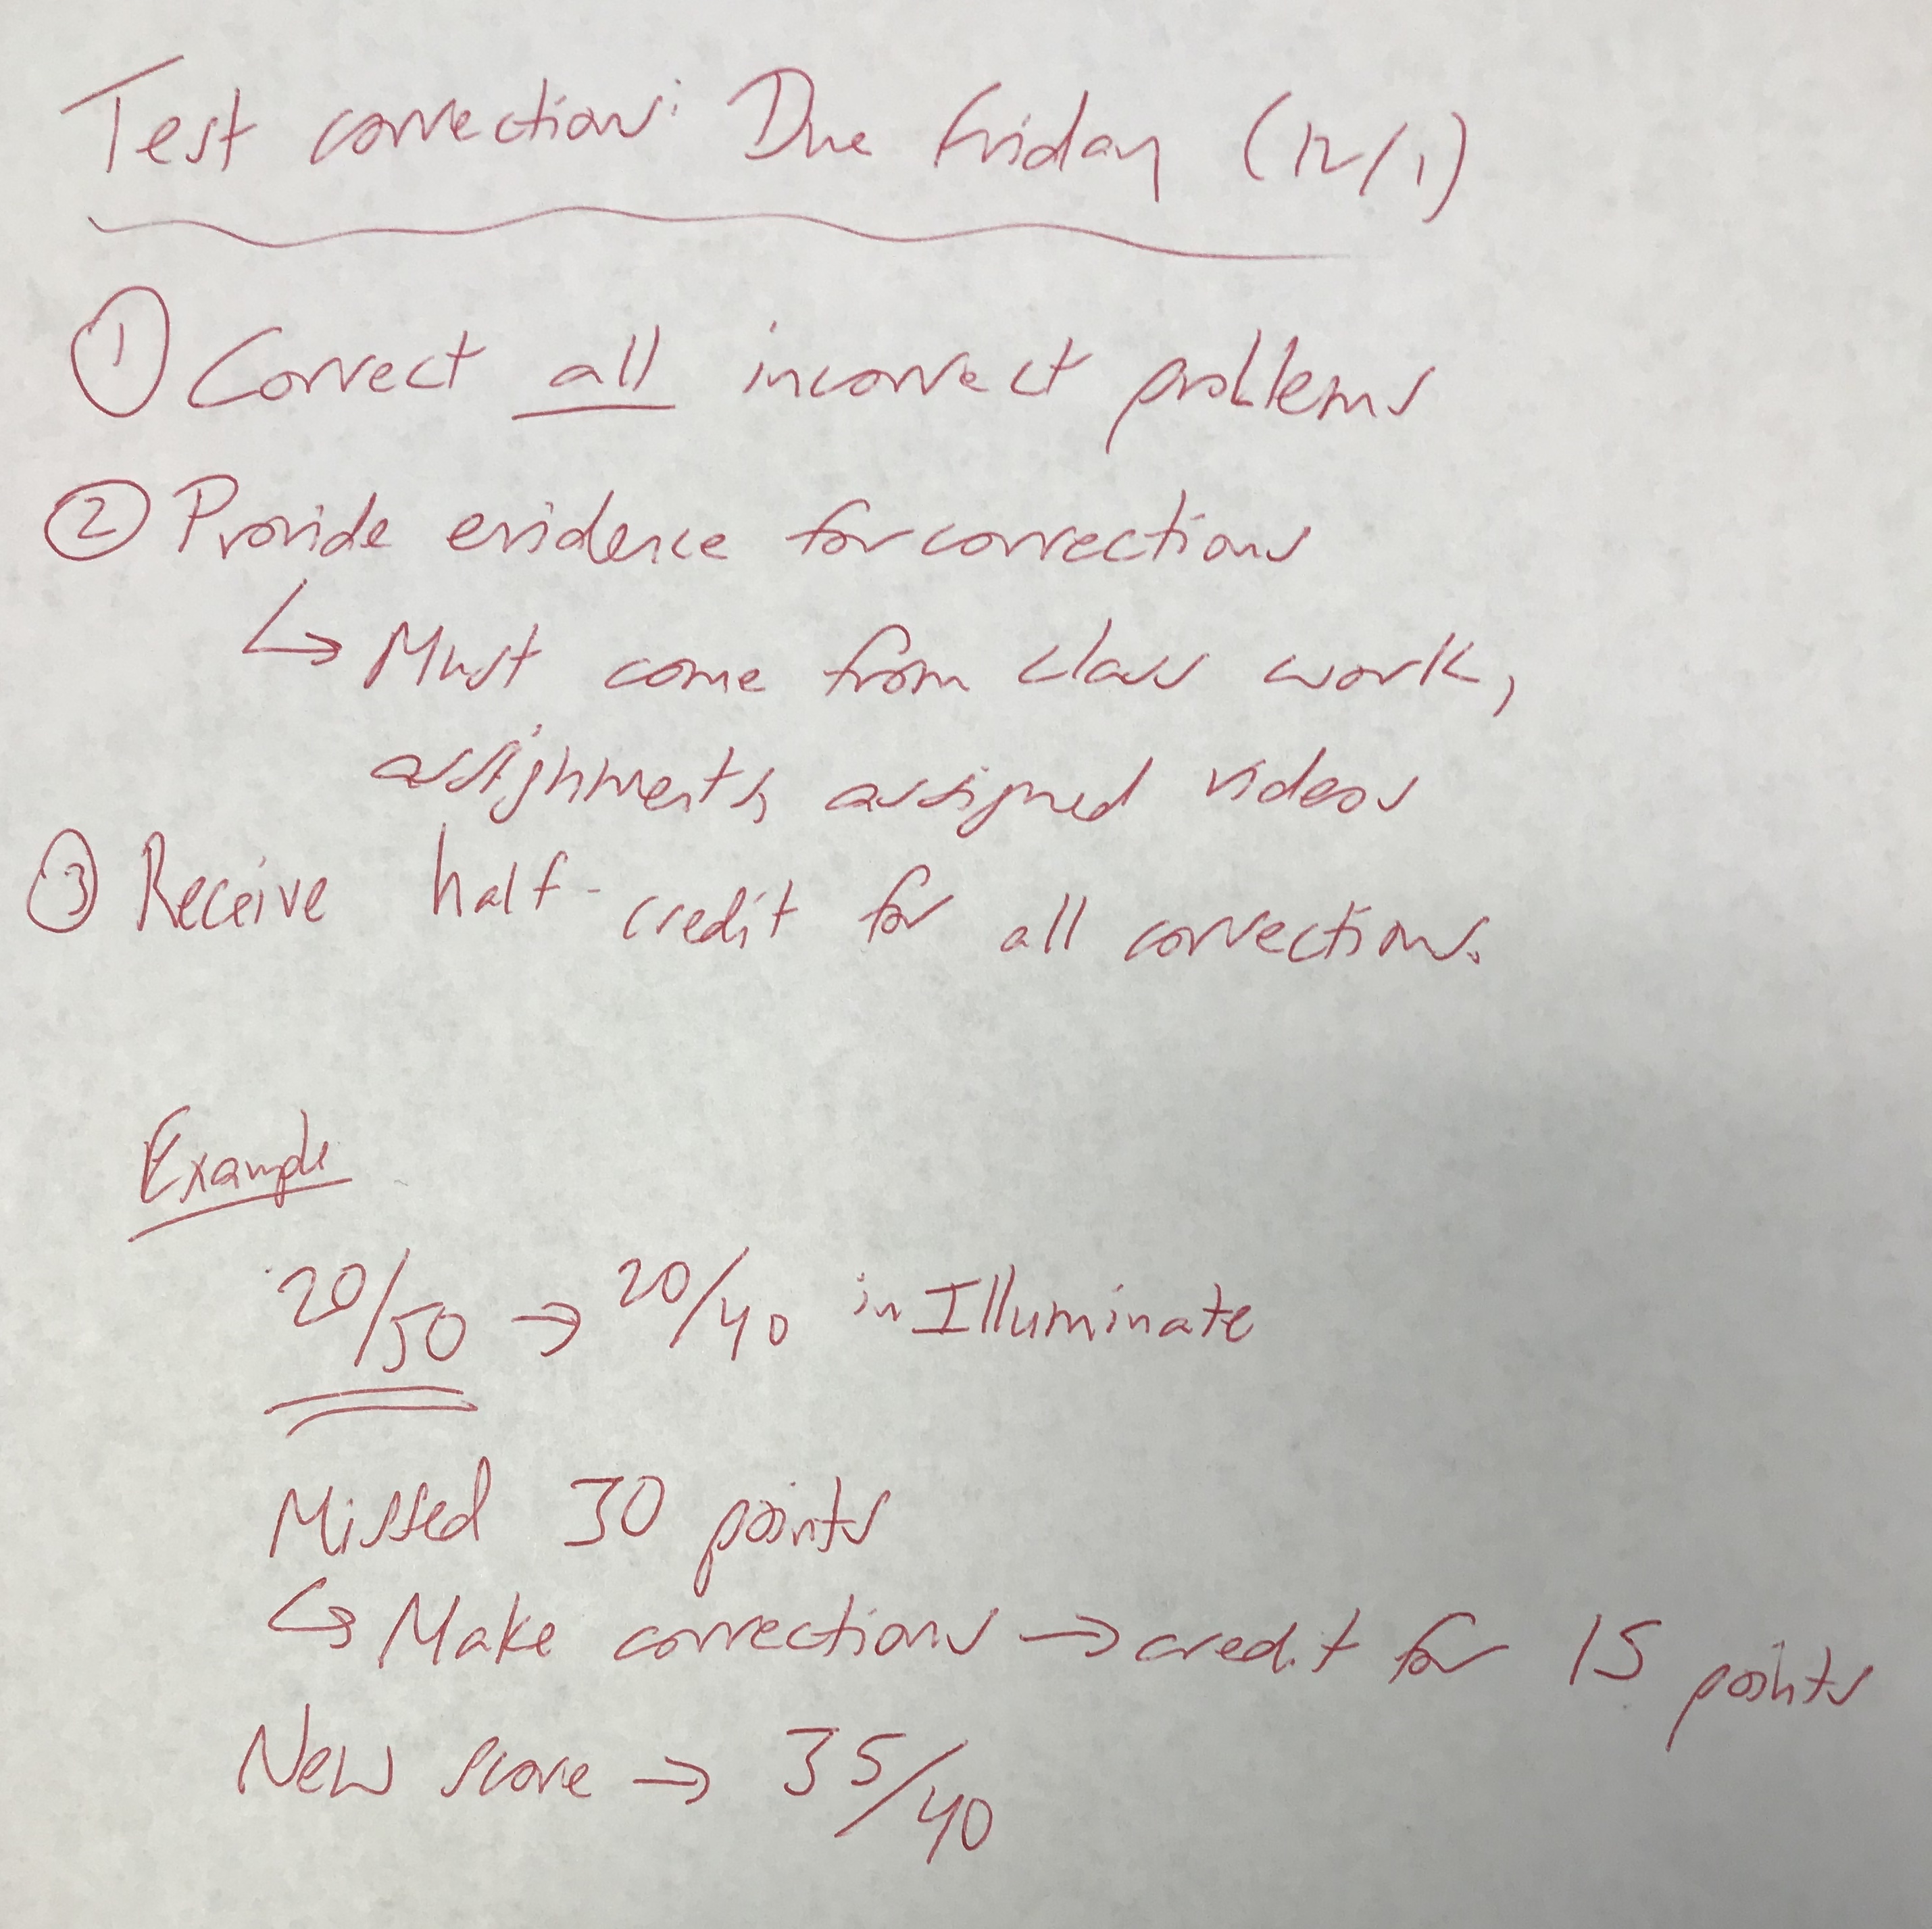 Test corrections: Due Friday (12/1)
① Correct all incorrect problems
② Provide evidence for corrections
↳ Must come from class work,
assignments, assigned videos
③ Receive half-credit for all corrections.
Example
20/50 → 20/40 in Illuminate
Missed 30 points
↳ Make corrections → credit for 15 points
New score → 35/40